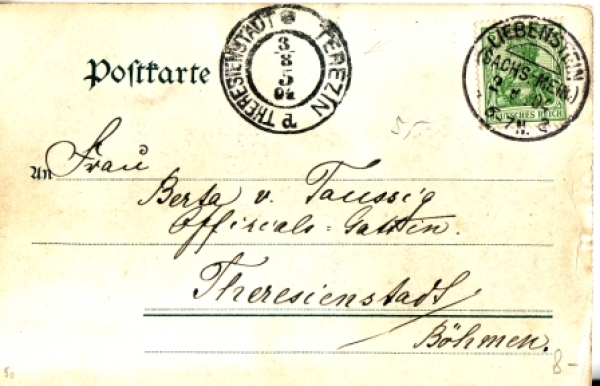 Postkarte
THERESIENSTADT TEREZIN
3
8
5
04
LIEBENSTEIN
(SACHS-MEIN.)
DEUTSCHES REICH
An Frau
Berta v. Taussig
Officials=Gattin.
Theresienstadt
Böhmen.
8-
50